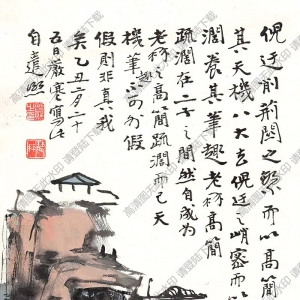 倪迂削荆關之繁而以高簡
其天機八大去倪迂之峭密而以
潤養其筆趣老杯高簡
疏潤在二子之間然自成為
老杯之高簡疏潤而已天
機筆趣不可分假
假則非真我
矣乙丑二月二十
五日嚴寒寫此
自遣